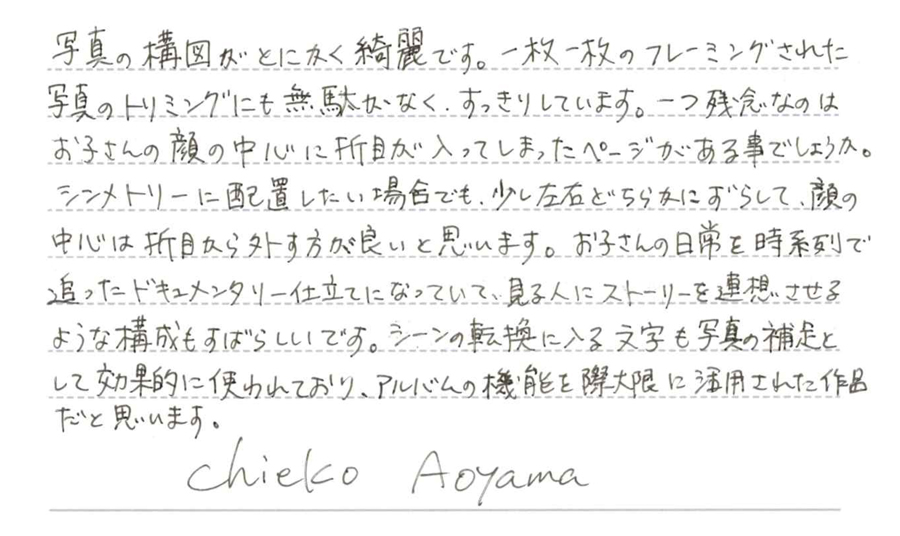 写真の構図がとにかく綺麗です。一枚一枚のフレーミングされた
写真のトリミングにも無駄がなく、すっきりしています。一つ残念なのは
お子さんの顔の中心に折目が入ってしまったページがある事でしょうか。
シンメトリーに配置したい場合でも、少し左右どちらかにずらして、顔の
中心は折目から外す方が良いと思います。お子さんの日常を時系列で
追ったドキュメンタリー仕立てになっていて、見る人にストーリーを連想させる
ような構成もすばらしいです。シーンの転換に入る文字も写真の補足と
して効果的に使われており、アルバムの機能を際大限に活用された作品
だと思います。
Chieko Aoyama